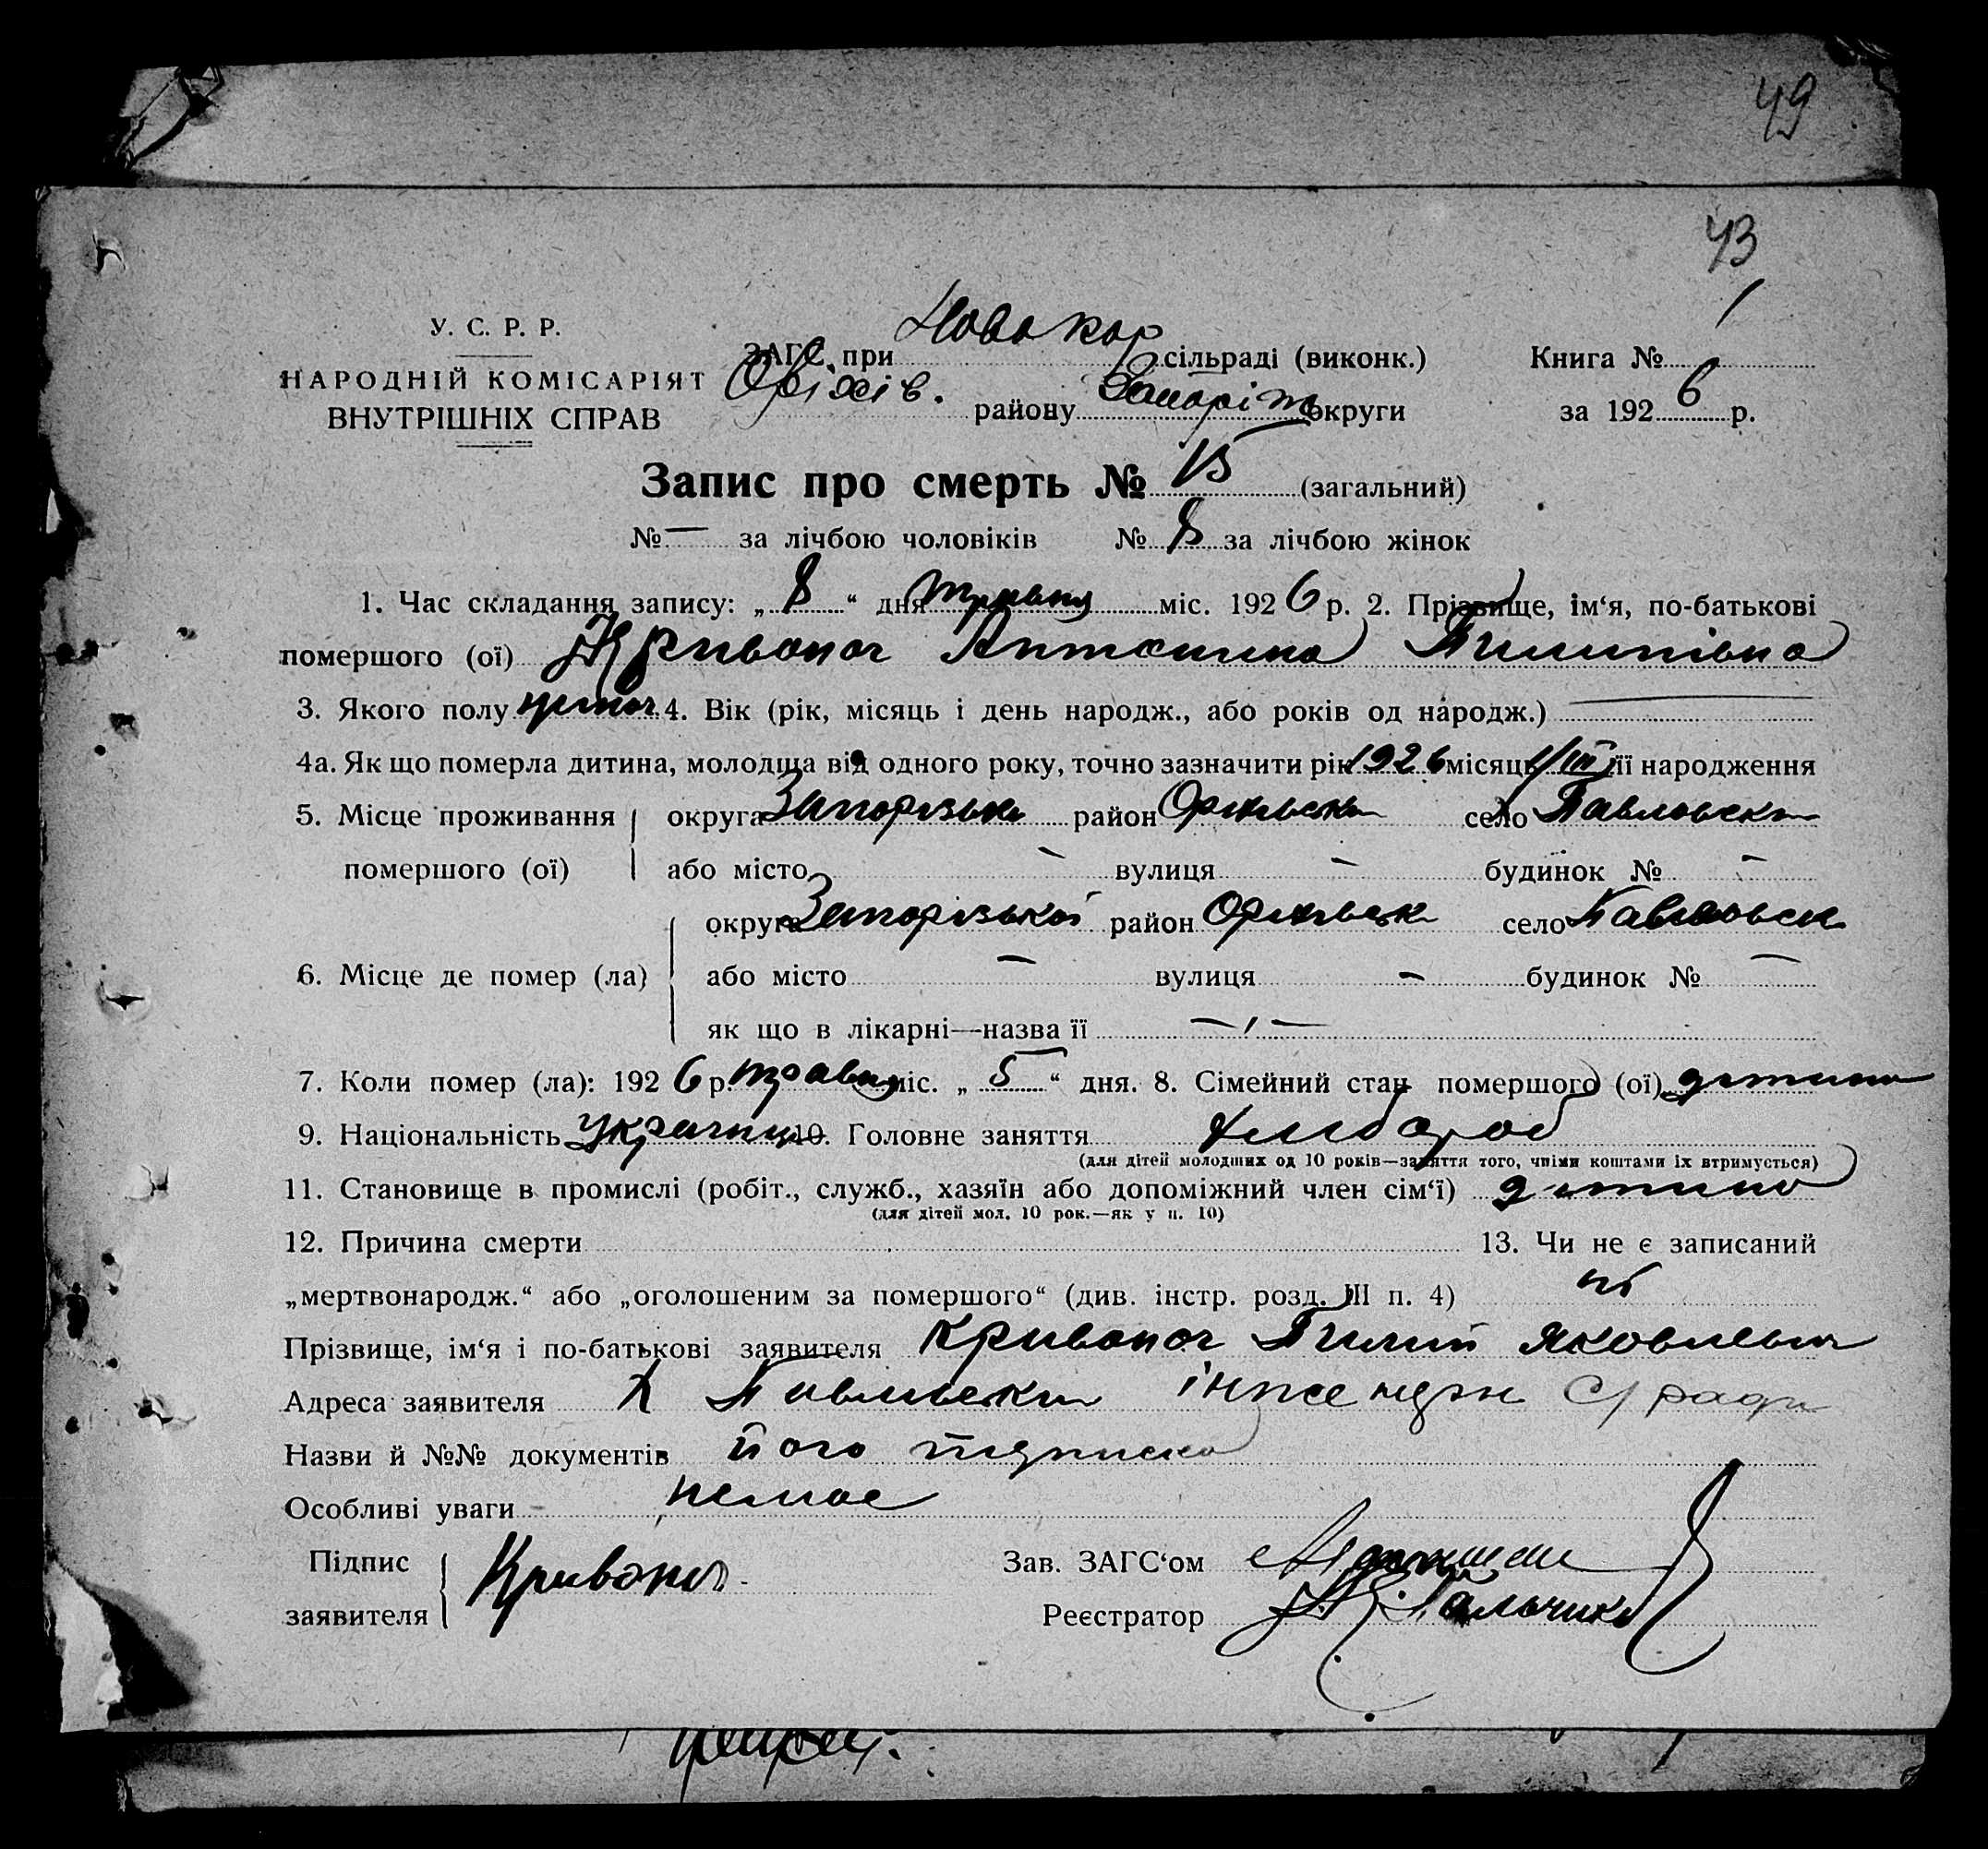 49
43
У. С. Р. Р.
НАРОДНІЙ КОМІСАРІЯТ
ВНУТРІШНІХ СПРАВ
ЗАГС при Новокар сільраді (виконк.) Книга № 1
Оріхів. району Запоріж округи за 1926 р.
Запис про смерть № 15 (загальний)
№ — за лічбою чоловіків № 8 за лічбою жінок
1. Час складання запису: „ 8 “ дня травня міс. 1926 р. 2. Прізвище, ім‘я, по-батькові
помершого (ої) Кривонос Антонина Пилипівна
3. Якого полу жіноч. 4. Вік (рік, місяць і день народж., або років од народж.) —
4а. Як що померла дитина, молодша від одного року, точно зазначити рік 1926 місяць 1/III її народження
5. Місце проживання округа Запорізька район Оріхівська село Павловски
помершого (ої) або місто — вулиця — будинок № —
округа Запорізької район Оріхівськ село Павловск
6. Місце де помер (ла) або місто — вулиця — будинок № —
як що в лікарні—назва її —„—
7. Коли помер (ла): 1926 р. травня міс. „ 5 “ дня. 8. Сімейний стан помершого (ої) дитина
9. Національність Україниц 10. Головне заняття хлібороб
(для дітей молодших од 10 років—заняття того, чиїми коштами їх втримується)
11. Становище в промислі (робіт., служб., хазяїн або допоміжний член сім‘ї) дитина
(для дітей мол. 10 рок.—як у п. 10)
12. Причина смерти 13. Чи не є записаний
„мертвонародж.“ або „оголошеним за помершого“ (див. інстр. розд. III п. 4) ні
Прізвище, ім‘я і по-батькові заявителя Кривонос Пилип Яковлевич
Адреса заявителя х Павлівски С/ ради
Назви й №№ документів його підписка
Особливі уваги немає
Підпис Кривонос Зав. ЗАГС‘ом
заявителя Реєстратор